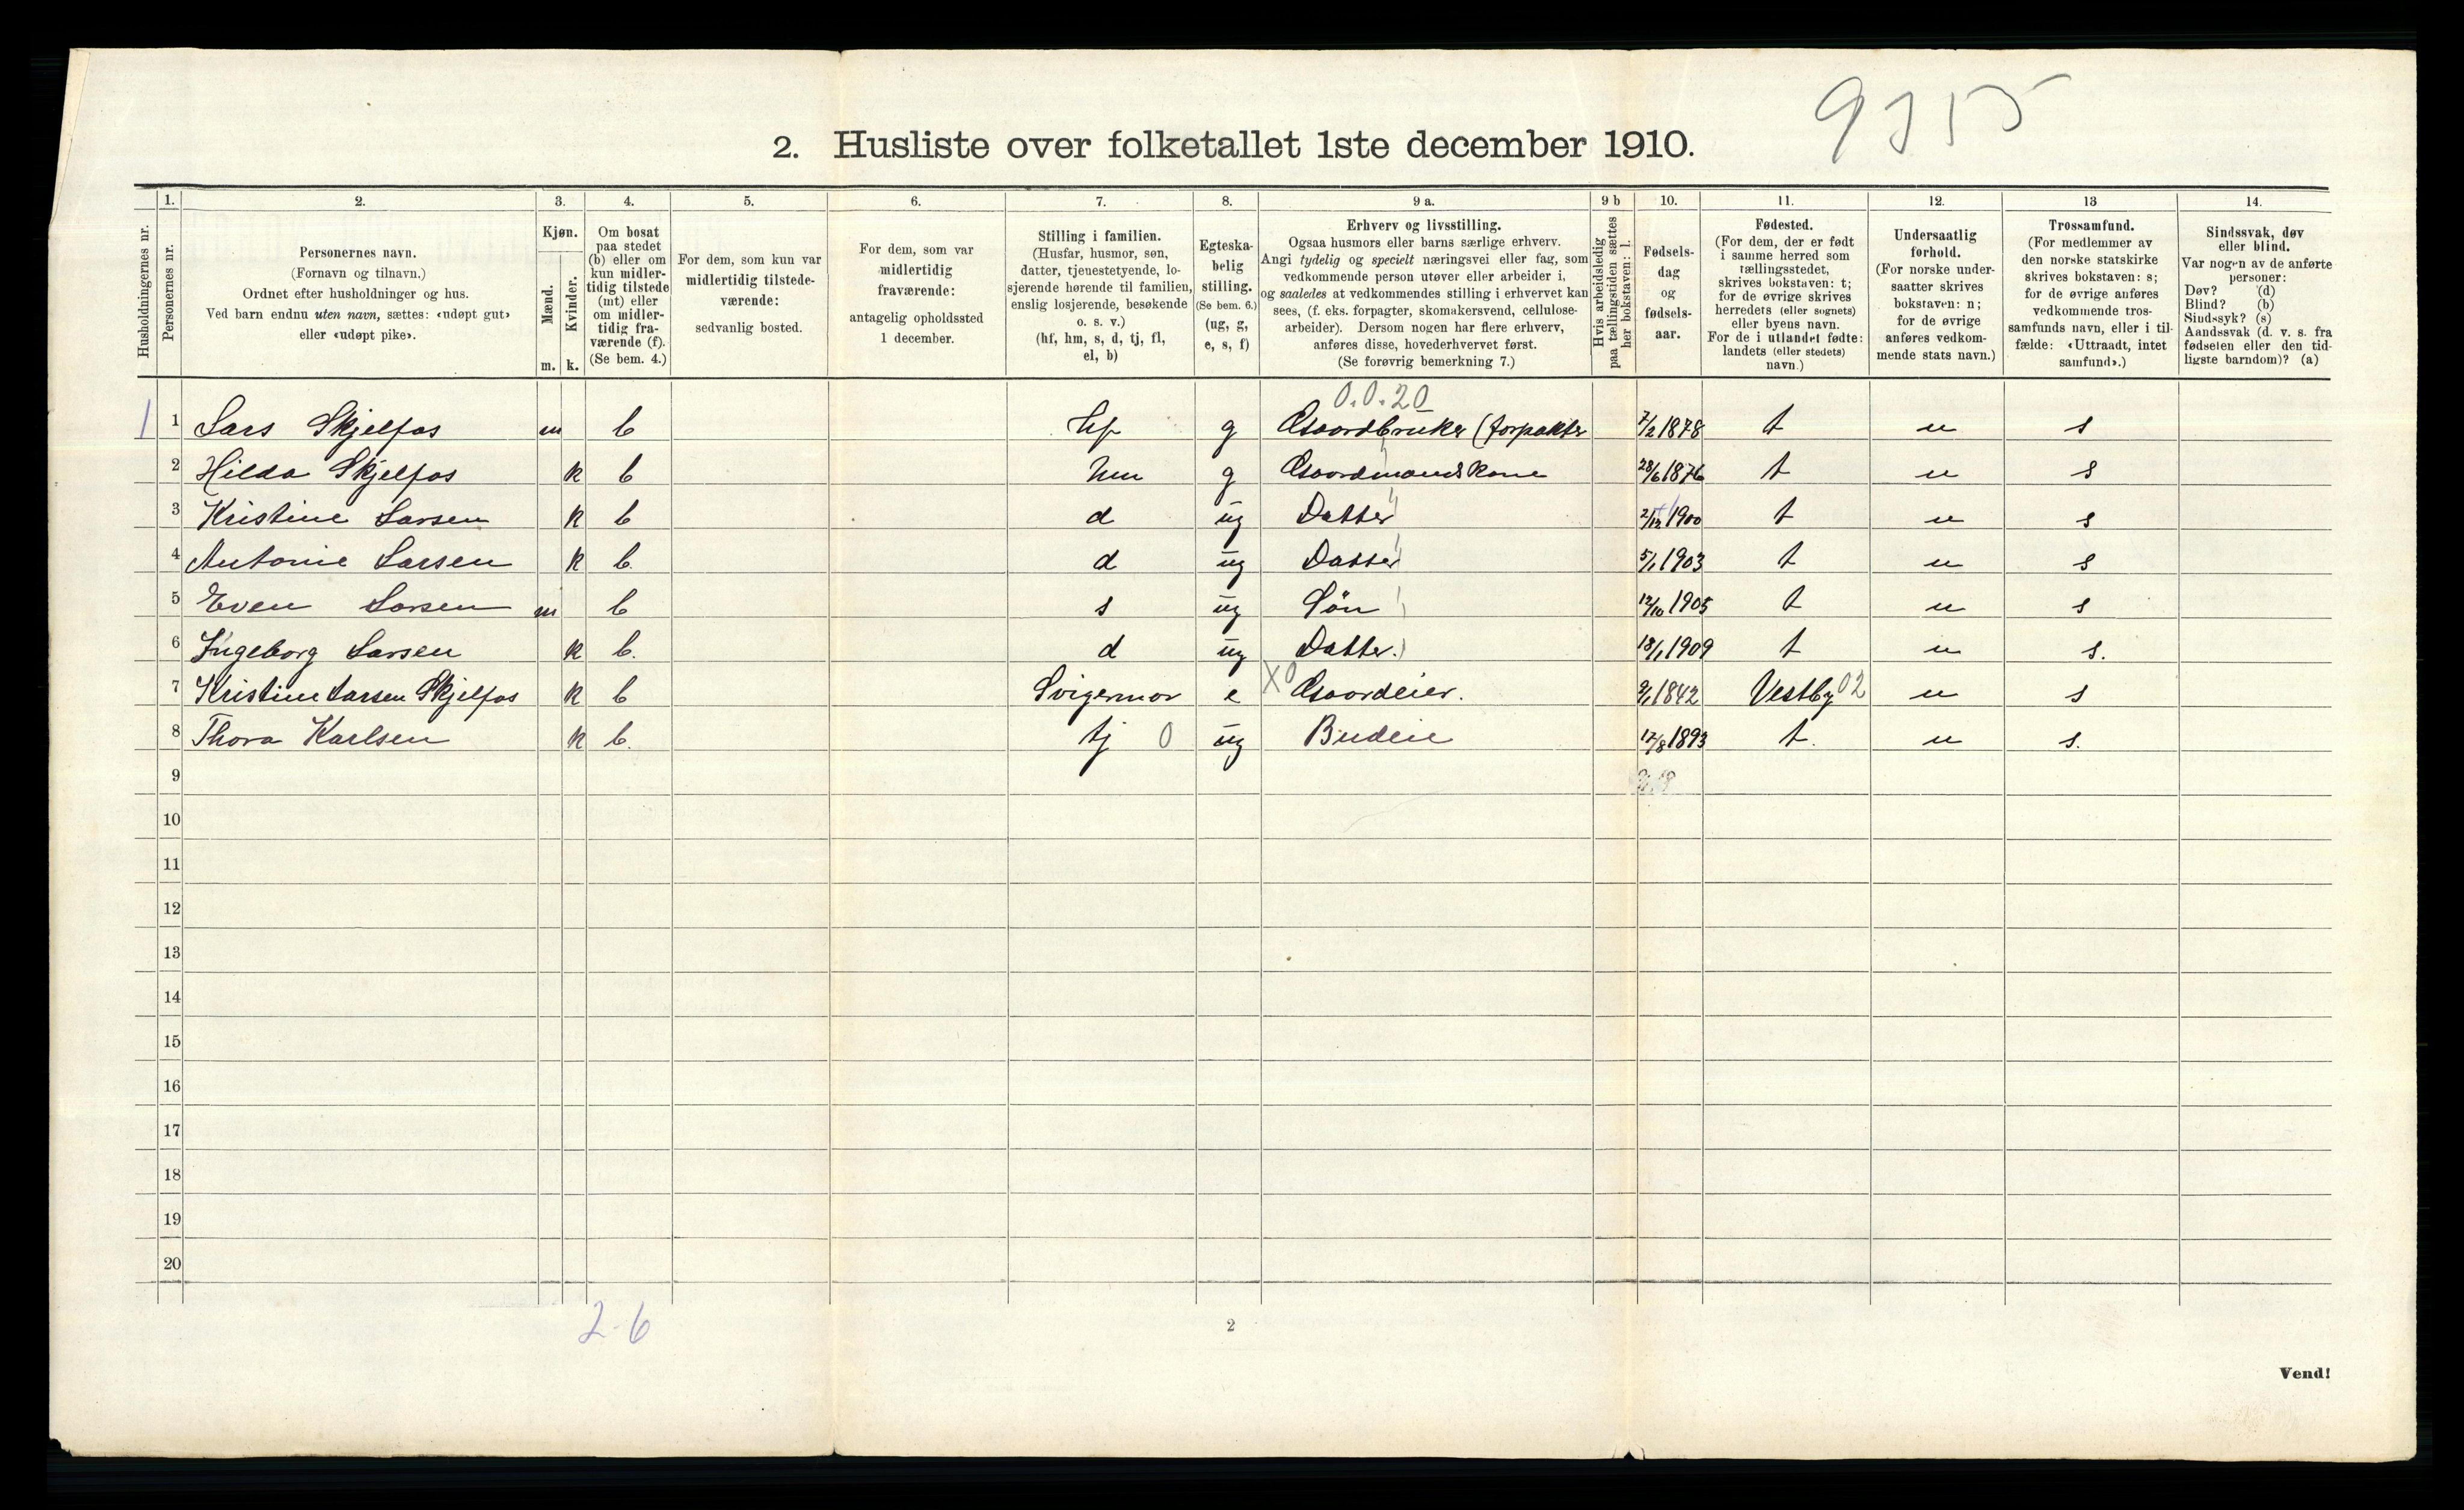 9315
2. Husliste over folketallet 1ste december 1910.
Husholdningernes nr.
1. Personernes nr.
2. Personernes navn. (Fornavn og tilnavn.) Ordnet efter husholdninger og hus. Ved barn endnu uten navn, sættes: «udøpt gut» eller «udøpt pike».
3. Kjøn. Mænd. m. Kvinder. k.
4. Om bosat paa stedet (b) eller om kun midlertidig tilstede (mt) eller om midlertidig fraværende (f). (Se bem. 4.)
5. For dem, som kun var midlertidig tilstedeværende: sedvanlig bosted.
6. For dem, som var midlertidig fraværende: antagelig opholdssted 1 december.
7. Stilling i familien. (Husfar, husmor, søn, datter, tjenestetyende, losjerende hørende til familien, enslig losjerende, besøkende o. s. v.) (hf, hm, s, d, tj, fl, el, b)
8. Egteskabelig stilling. (Se bem. 6.) (ug, g, e, s, f)
9 a. Erhverv og livsstilling. Ogsaa husmors eller barns særlige erhverv. Angi tydelig og specielt næringsvei eller fag, som vedkommende person utøver eller arbeider i, og saaledes at vedkommendes stilling i erhvervet kan sees, (f. eks. forpagter, skomakersvend, cellulosearbeider). Dersom nogen har flere erhverv, anføres disse, hovederhvervet først. (Se forøvrig bemerkning 7.)
9 b Hvis arbeidsledig paa tællingstiden sættes her bokstaven: l.
10. Fødselsdag og fødselsaar.
11. Fødested. (For dem, der er født i samme herred som tællingsstedet, skrives bokstaven: t; for de øvrige skrives herredets (eller sognets) eller byens navn. For de i utlandet fødte: landets (eller stedets) navn.)
12. Undersaatlig forhold. (For norske undersaatter skrives bokstaven: n; for de øvrige anføres vedkommende stats navn.)
13 Trossamfund. (For medlemmer av den norske statskirke skrives bokstaven: s; for de øvrige anføres vedkommende trossamfunds navn, eller i tilfælde: «Uttraadt, intet samfund».)
14. Sindssvak, døv eller blind. Var nogen av de anførte personer: Døv? (d) Blind? (b) Sindssyk? (s) Aandssvak (d. v. s. fra fødselen eller den tidligste barndom)? (a)
0.0.20
1 1 Lars Skjelfos m b hf g Gaardbruker (forpakter 7/2 1878 t n s
2 Hilda Skjelfos k b hm g Gaardmandskone 28/6 1876 t n s
3 Kristine Larsen k b d ug Datter 2/12 1900 t n s
4 Antonie Larsen k b. d ug Datter 5/1 1903 t n s
5 Even Larsen m b s ug Søn 12/10 1905 t n s
6 Ingeborg Larsen k b. d ug Datter. 18/1 1909 t n s.
7 Kristine Larsen Skjelfos k b Svigermor e X0 Gaardeier. 9/1 1842 Vestby 02 n s
8 Thora Karlsen k b. tj 0 ug Budeie 12/8 1893 t. n s.
9
10
11
12
13
14
15
16
17
18
19
20
2-6
2
Vend!